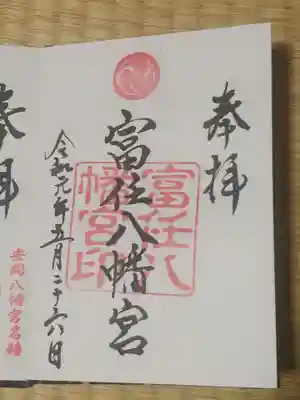 奉拝
富任八幡宮
富任八幡宮印
令和元年五月二十六日
安岡八幡宮
奉拝